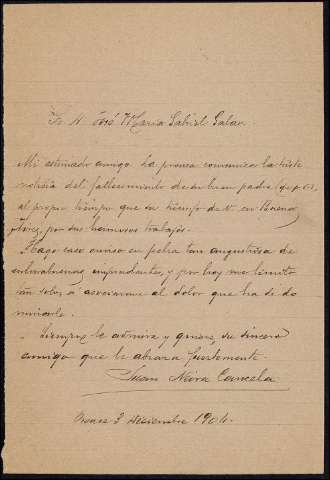 Sr. D. José María Gabriel Galan
Mi estimado amigo: La prensa comunica la triste
noticia del fallecimiento de su buen padre (q.e.p.d.),
al propio tiempo que su triunfo de V. en Buenos
Aires, por sus hermosos trabajos.
Hago caso omiso en fecha tan angustiosa de
y por hoy me limito
tan solo, á asociarme al dolor que ha de
Siempre le admira y quiere, su sincero
amigo que le abraza fuertemente.
Juan Neira Cancela
Orense 3 diciembre 1904.